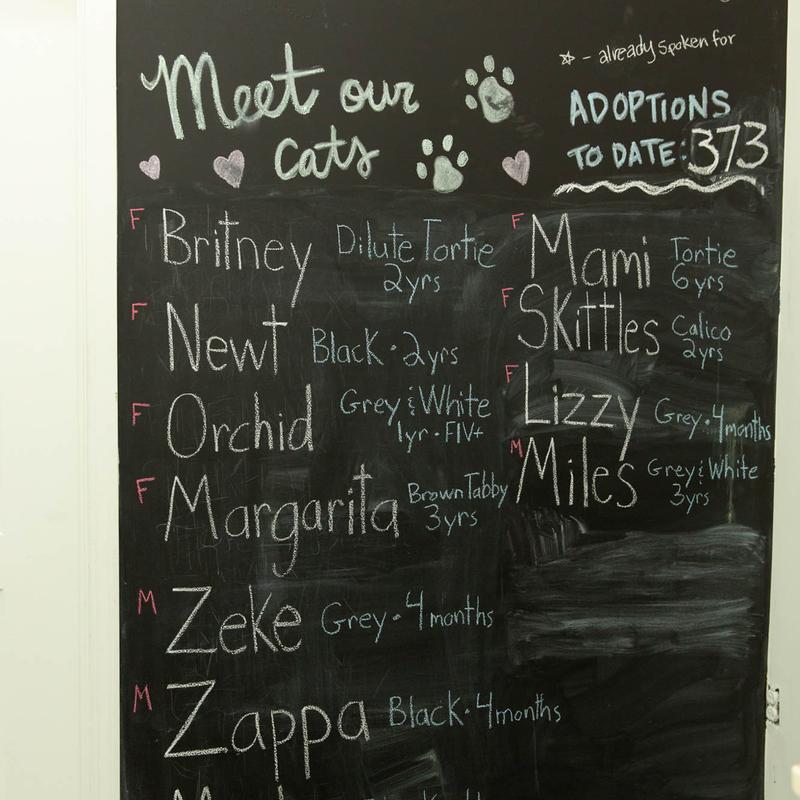 Meet our
cats
☆ - already spoken for
ADOPTIONS
TO DATE: 373
F Britney Dilute Tortie
2yrs
F Newt Black • 2yrs
F Orchid Grey & White
1yr • FIV+
F Margarita Brown Tabby
3yrs
M Zeke Grey • 4 months
M Zappa Black • 4 months
F Mami Tortie
6 yrs
F Skittles Calico
2yrs
F Lizzy Grey • 4 months
M Miles Grey & White
3yrs